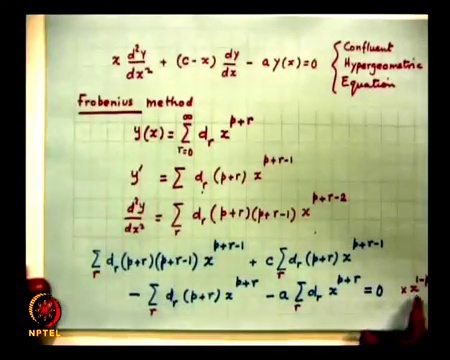 x d²y/dx² + (c-x) dy/dx - a y(x) = 0 { Confluent Hypergeometric Equation
Frobenius method
y(x) = ∑_{r=0}^{∞} d_r x^{p+r}
y' = ∑ d_r (p+r) x^{p+r-1}
d²y/dx² = ∑_r d_r (p+r)(p+r-1) x^{p+r-2}
∑_r d_r (p+r)(p+r-1) x^{p+r-1} + c ∑_r d_r (p+r) x^{p+r-1}
- ∑_r d_r (p+r) x^{p+r} - a ∑_r d_r x^{p+r} = 0 × x^{1-p}
NPTEL